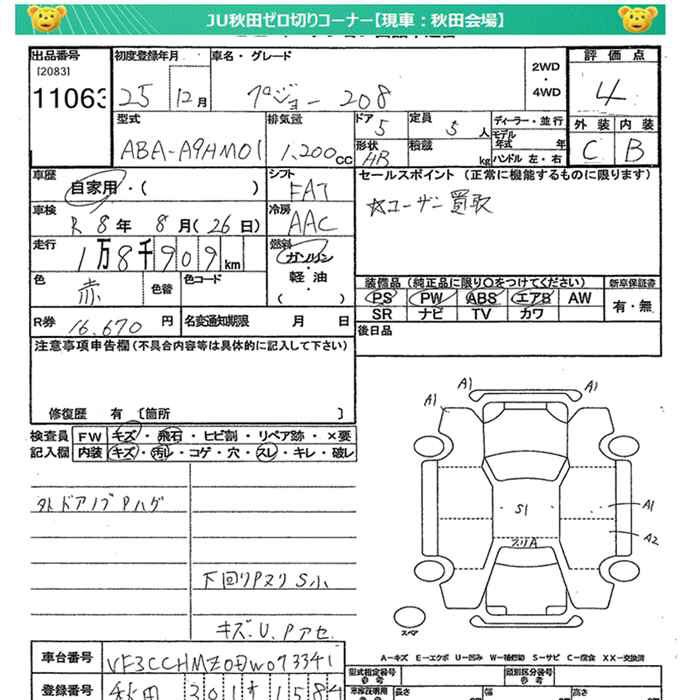 JU秋田ゼロ切りコーナー【現車:秋田会場】
出品番号 初度登録年月 車名・グレード 評価点
[2083] 11063 25 12月 プジョー 208 2WD・4WD 4
型式 排気量 ドア 定員 ディーラー・並行 外装 内装
ABA-A9HM01 1,200cc 5 5人 モデル年式 年 C B
形状 HB 積載 kg ハンドル 左・右
車歴 自家用・( ) シフト FAT セールスポイント (正常に機能するものに限ります)
車検 R8年 8月(26日) 冷房 AAC ☆ユーザー買取
走行 1万8千909km 燃料 ガソリン・軽油・( )
色 赤 色替 色コード 装備品(純正品に限り○をつけてください) 新車保証書
PS PW ABS エアB AW 有・無
R券 16,670円 名変通知期限 月 日 SR ナビ TV カワ
注意事項申告欄(不具合内容等は具体的に記入して下さい) 後日品
修復歴 有 〔箇所 〕
検査員 FW キズ・飛石・ヒビ割・リペア跡・×要
記入欄 内装 キズ・汚レ・コゲ・穴・スレ・キレ・破レ
A1 A1
A1
外ドアノブPハゲ
S1 A1
A2
下回りPヌリS小
キズ.U.Pアセ
スペア
A-キズ E-エクボ U-凹み W-補修跡 S-サビ C-腐食 XX-交換済
車台番号 VF3CCHMZ0DW073341 型式指定番号 類別区分番号
登録番号 秋田 長さ 幅 高さ